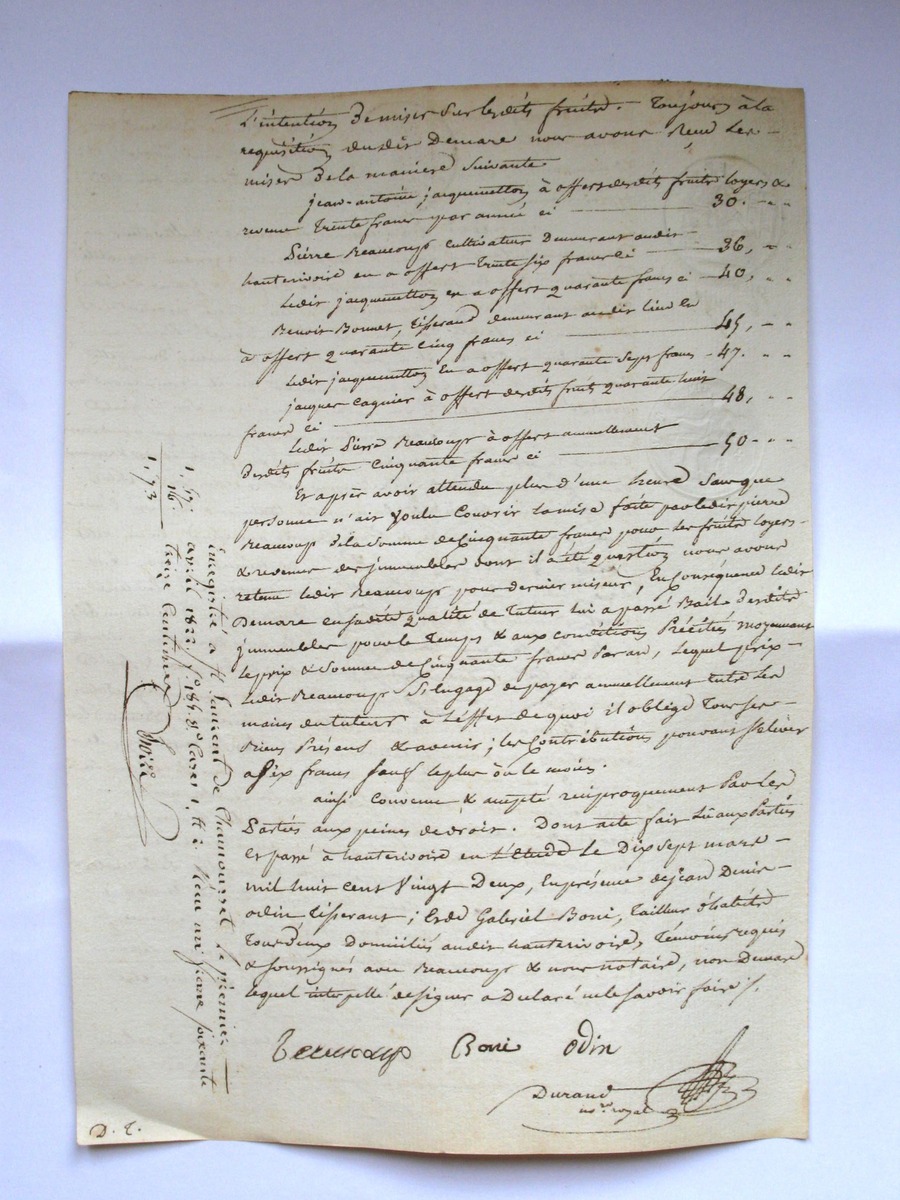 L'intention de miser sur lesdits fruits. Toujours à la
requisition dudit Demare nous avons Reçu les
mises de la maniere suivante
jean-antoine jacquemetton à offert desdits fruits loyers &
revenu Trente francs par année ci 30. " "
Pierre Beaucoup cultivateur Demeurant audit
hauterivoire en a offert Trente six francs ci 36, " "
Ledit jacquemetton en a offert quarante francs ci 40, " "
Benoit Bonnet, Tisserand demeurant audit lieu en
à offert quarante cinq francs ci 45, " "
Ledit jacquemetton En a offert quarante sept francs 47. " "
jacques Cagnier à offert desdits fruits quarante huit
francs ci 48, " "
Ledit Pierre Beaucoup à offert annuellement
Desdits fruits Cinquante francs ci 50 " "
Et après avoir attendu plus d'une heure sans que
personne n'ait voulu Couvrir la mise faite par ledit pierre
Beaucoup de la somme de Cinquante francs pour les fruits loyers
& revenus des jmmeubles dont il a été question nous avons
retenu ledit Beaucoup pour dernier miseur, En Conséquence ledit
Demare en sadite qualité de Tuteur lui a passé Bail desdits
jmmeubles pour le Temps & aux conditions Précitées moyennant
le prix & somme de Cinquante francs Par an, Lequel prix
Ledit Beaucoup S'Engage de payer annuellement entre les
mains du tuteur à L'effet de quoi il oblige Tous ses
Biens Présens & avenir; les Contributions pouvant S'élever
a Six francs sauf le plus ou le moins.
ainsi Convenu & accepté réciproquement Par les
Parties aux peines de droit. Dont acte fait Lu aux Parties
Et passé à hauterivoire en L'Etude Le Dix sept mars
mil huit cent Vingt Deux, En présence de jean Denis
odin Tisserant; Et de Gabriel Boni, Tailleur d'habits
Tous deux Domiciliés audit hauterivoire, Témoins requis
& soussignés avec Beaucoup & nous notaire, non Demare
lequel interpellé de signer a Déclaré ne le savoir faire /.
Beaucoup Boni Odin
Durand
no.re royal
D. T.
Enregistré à St Laurent de Chamousset le premier
avril 1822. f.o 184 V.o Cases 1, et 2 Reçu un franc soixante
treize Centimes
1. 57
16
1. 73